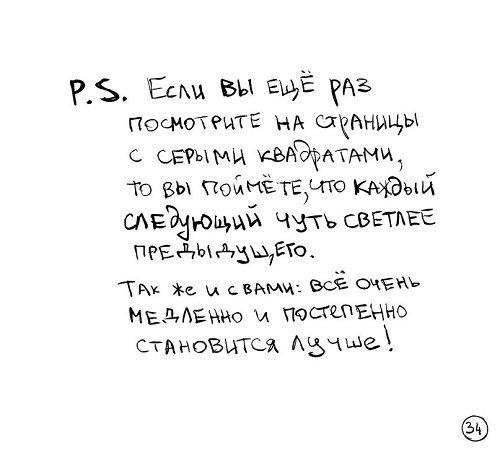 P.S. Если вы ещё раз
посмотрите на страницы
с серыми квадратами,
то вы поймёте, что каждый
следующий чуть светлее
предыдущего.
Так же и с вами: всё очень
медленно и постепенно
становится лучше!
34